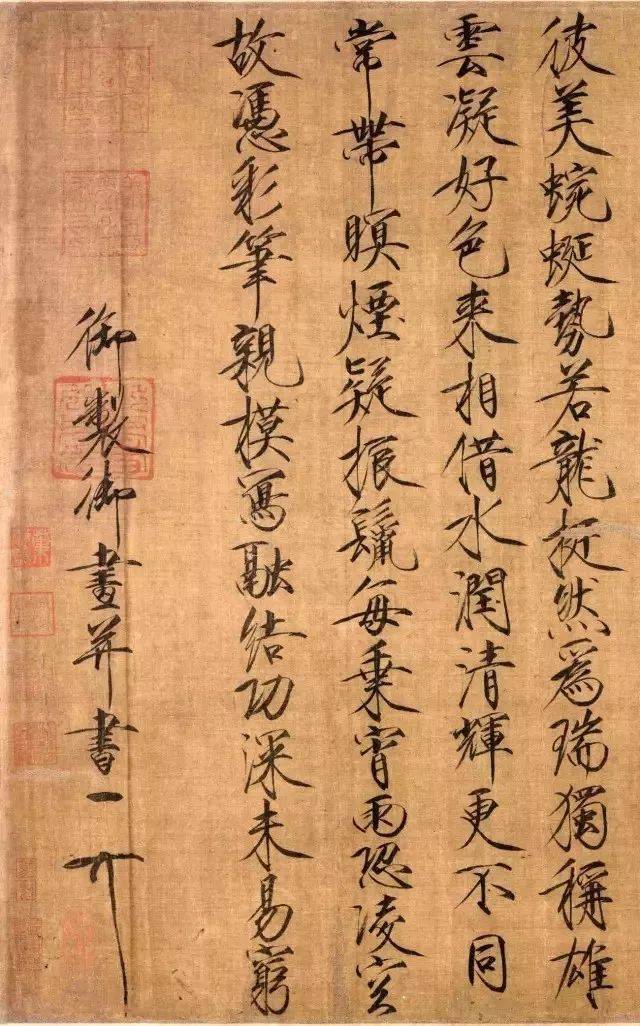 彼美蜿蜒勢若龍挺然為瑞獨稱雄
雲凝好色来相借水潤清輝更不同
常帶暝煙疑振鬣每乘宵雨恐凌空
故憑彩筆親模寫融結功深未易窮
御製御畫并書